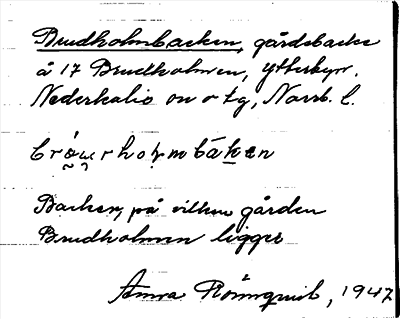 Brudholmbacken, gårdsbacke
å 17 Brudholmen, Ytterbyn,
Nederkalix sn o tg, Norrb. l.
brówrhoḷmbákan
Backen, på vilken gården
Brudholmen ligger
Anna Rönnquist, 1947